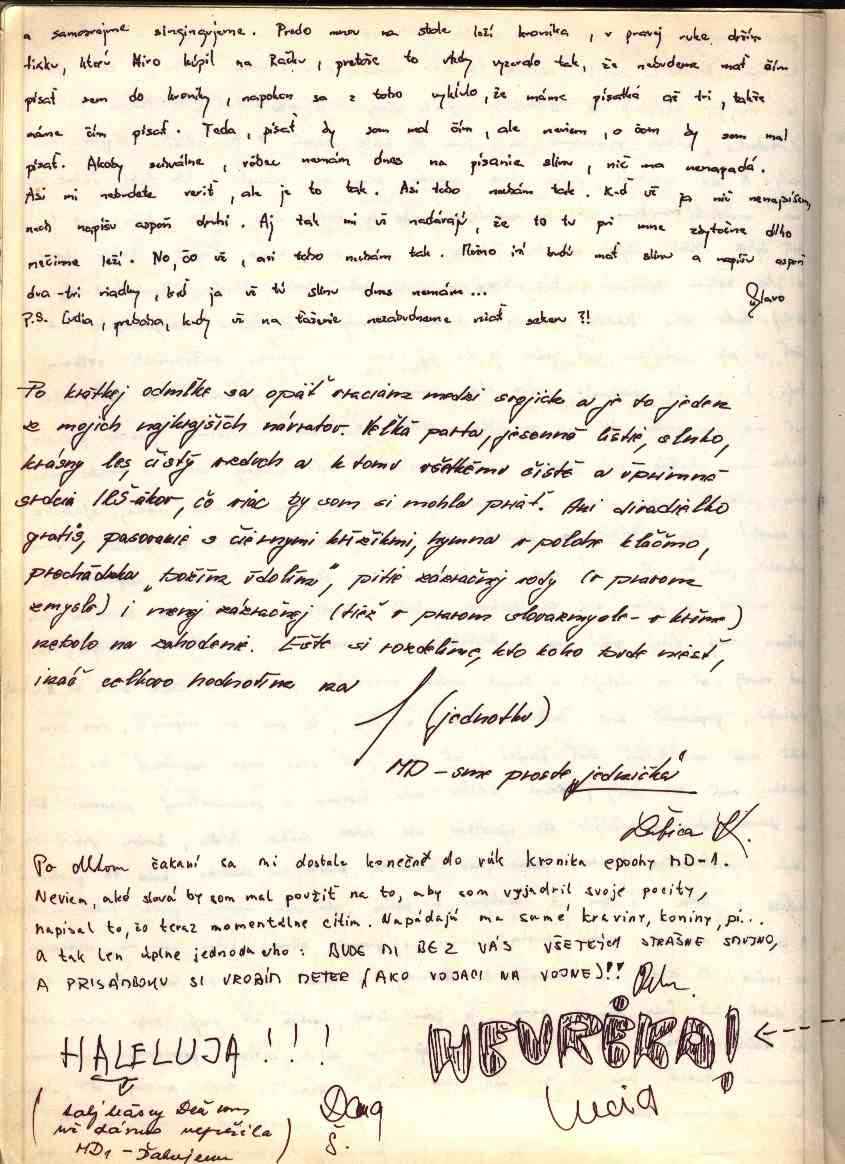 a samozrejme singingujeme. Predo mnou na stole leží kronika, v pravej ruke držím
fixku, ktorú Miro kúpil na Račku, pretože to vtedy vyzeralo tak, že nebudeme mať čím
písať sem do kroniky, napokon sa z toho vykľulo, že máme písatká až tri, takže
máme čím písať. Teda, písať by som mal čím, ale neviem, o čom by som mal
písať. Akoby schválne, vôbec nemám dnes na písanie slinu, nič ma nenapadá.
Asi mi nebudete veriť, ale je to tak. Asi toho nechám tak. Keď už ja nič nenapíšem,
nech napíšu aspoň druhí. Aj tak mi už nadávajú, že to tu pri mne zbytočne dlho
nečinne leží. No, čo už, asi toho nechám tak. Možno iní budú mať slinu a napíšu aspoň
dva-tri riadky, keď ja už tú slinu dnes nemám...
Slavo
P.S. Ľudia, preboha, kedy už na ťaženie nezabudneme vziať sekeru?!
Po krátkej odmlke sa opäť vraciam medzi svojich a je to jeden
z mojich najkrajších návratov. Veľká parta, jesenné lístie, slnko,
krásny les, čistý vzduch a k tomu všetkému čisté a úprimné
srdcia IKŠ-ákov, čo viac by som si mohla priať. Ani divadielko
gratis, pasovanie s čiernymi krížikmi, hymna v polohe kľačmo,
prechádzka "božím údolím", pitie zázračnej vody (v pravom
zmysle) i menej zázračnej (tiež v pravom slovazmysle - v krčme)
nebolo na zahodenie. Ešte si rozdelíme, kto koho bude niesť,
ináč celkovo hodnotím na
1 (jednotku)
MD - sme proste "jednička"
Ľubica K.
Po dlhom čakaní sa mi dostala konečne do rúk kronika epochy MD-1.
Neviem, aké slová by som mal použiť na to, aby som vyjadril svoje pocity,
napísal to, čo teraz momentálne cítim. Napádajú ma samé kraviny, koniny, pi...
A tak len úplne jednoducho: BUDE MI BEZ VÁS VŠETKÝCH STRAŠNE SMUTNO,
A PRISÁMBOHU SI UROBÍM METER (AKO VOJACI NA VOJNE)!!
HALELUJA!!!
HEURÉKA!
(taký krásny Deň som
už dávno neprežila
MD1 - Ďakujem)
Dana
Š.
Lucia